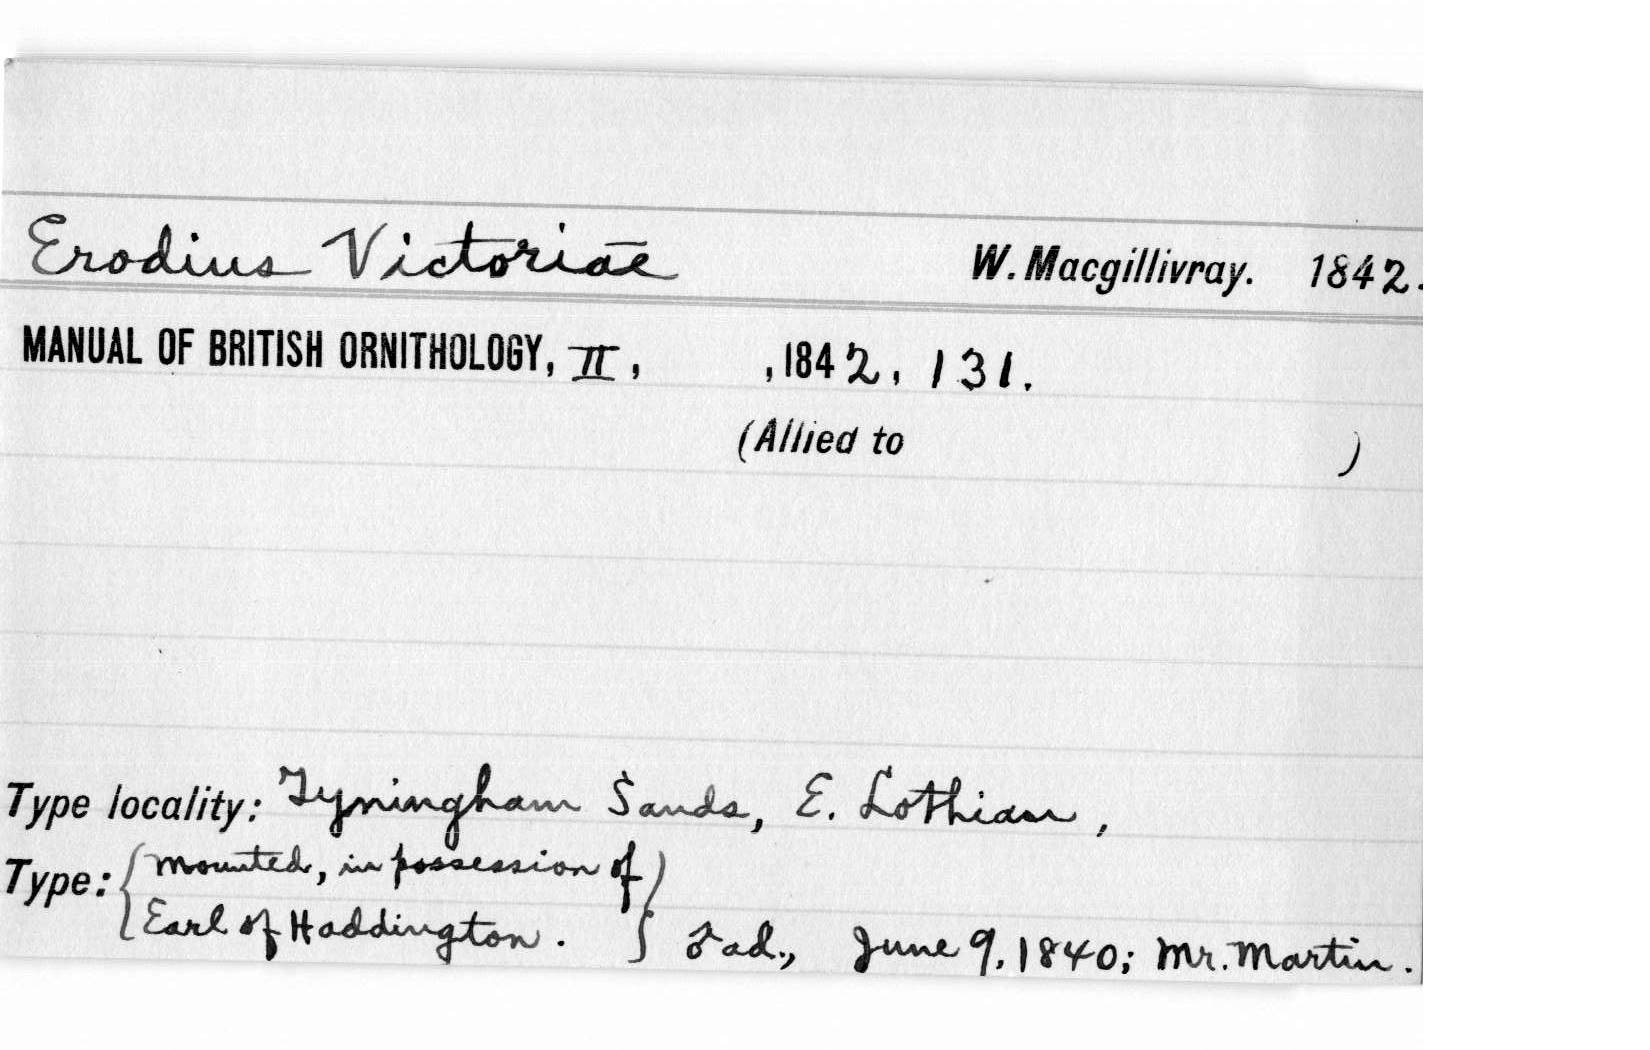 Erodius Victoriae W. Macgillivray. 1842.
MANUAL OF BRITISH ORNITHOLOGY, II, ,1842, 131.
(Allied to )
Type locality: Tyningham Sands, E. Lothian,
Type: { Mounted, in possession of }
Earl of Haddington. ♂ ad., June 9, 1840; Mr. Martin.